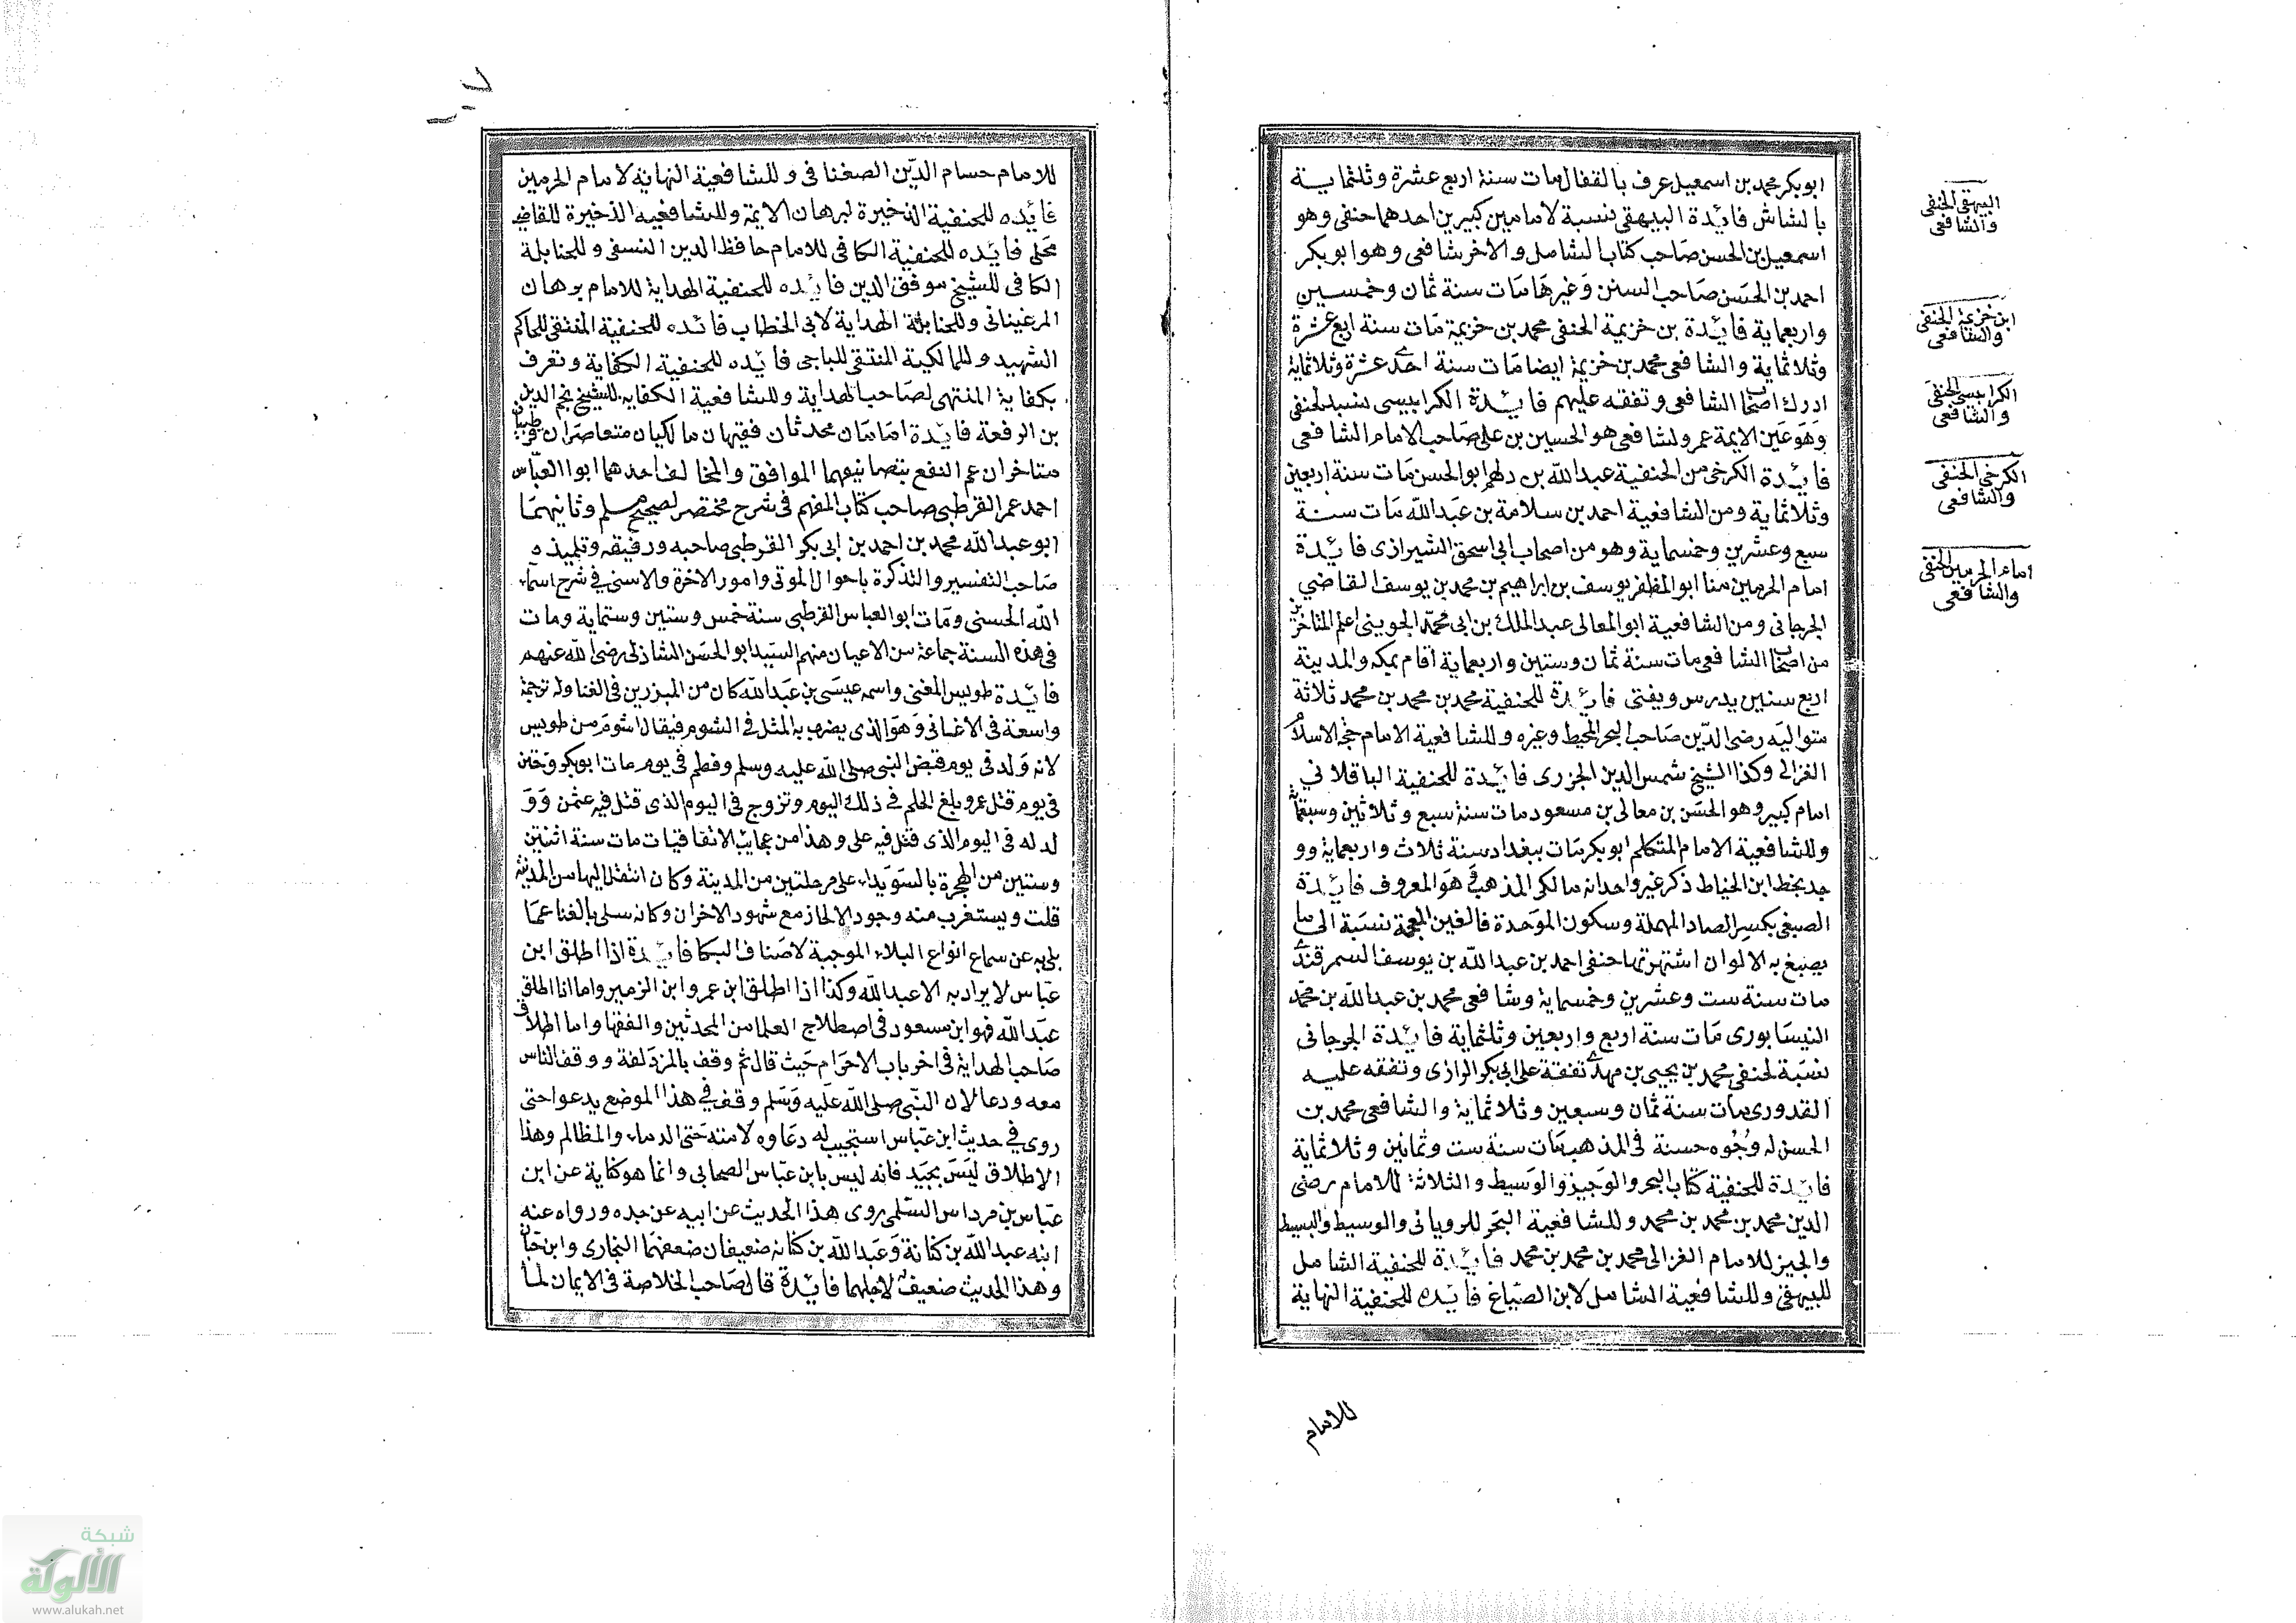 ابو بكر محمد بن اسمعيل عرف بالقفال مات سنة اربع عشرة وثلثماية
بالشاش فايدة البيهقي نسبة لامامين كبيرين احدهما حنفي وهو
اسمعيل بن الحسن صاحب كتاب الشامل والاخر شافعي وهو ابو بكر
احمد بن الحسن صاحب السنن وغيرها مات سنة ثمان وخمسين
واربعماية فايدة بن خزيمة الحنفي محمد بن خزيمة مات سنة اربع عشرة
وثلاثماية والشافعي محمد بن خزيمة ايضا مات سنة احدى عشرة وثلاثماية
ادرك اصحاب الشافعي وتفقه عليهم فايدة الكرابيسى نسبة لحنفى
وهو عين الايمة عمر ولشافعي هو الحسين بن على صاحب الامام الشافعى
فايدة الكرخى من الحنفية عبد الله بن دلهم ابو الحسن مات سنة اربعين
وثلاثماية ومن الشافعية احمد بن سلامة بن عبد الله مات سنة
سبع وعشرين وخمسماية وهو من اصحاب ابى اسحق الشيرازى فايدة
امام الحرمين منا ابو المظفر يوسف بن ابراهيم بن محمد بن يوسف القاضي
الجرجانى ومن الشافعية ابو المعالى عبد الملك بن ابى محمد الجوينى اعلم المتاخرين
من اصحاب الشافعى مات سنة ثمان وستين واربعماية اقام بمكه والمدينة
اربع سنين يدرس ويفتى فايدة للحنفية محمد بن محمد بن محمد ثلاثة
متواليه رضى الدين صاحب البحر المحيط وغيره وللشافعية الامام حجة الاسلام
الغزالى وكذا الشيخ شمس الدين الجزرى فايدة للحنفية الباقلاني
امام كبير وهو الحسن بن معالى بن مسعود مات سنة سبع وثلاثين وستماية
وللشافعية الامام المتكلم ابو بكر مات ببغداد سنة ثلاث واربعماية وو
جد بخط ابن الخياط ذكر غير واحد انه مالكى المذهب وهو المعروف فايدة
الصبغى بكسر الصاد المهملة وسكون الموحدة فالغين المعجمة نسبة الى ما
يصبغ به الالوان اشتهر بها حنفى احمد بن عبد الله بن يوسف السمرقندى
مات سنة ست وعشرين وخمسماية وشافعى محمد بن عبد الله بن محمد
النيسابورى مات سنة اربع واربعين وثلثماية فايدة الجرجانى
نسبة لحنفى محمد بن يحيى بن مهدى تفقه على ابى بكر الرازى وتفقه عليه
القدورى مات سنة ثمان وسبعين وثلاثماية والشافعى محمد بن
الحسن له وجوه حسنة فى المذهب مات سنة ست وثمانين وثلاثماية
فايدة للحنفية كتاب البحر والوجيز والوسيط والثلاثة للامام رضى
الدين محمد بن محمد بن محمد وللشافعية البحر للرويانى والوسيط والبسيط
والجيز للامام الغزالى محمد بن محمد بن محمد فايدة للحنفية الشامل
للبيهقى وللشافعية الشامل لابن الصباغ فايده للحنفية النهاية
البيهقى الحنفى
والشافعى
ابن خزيمة الحنفى
والشافعى
الكرابيسى الحنفى
والشافعى
الكرخى الحنفى
والشافعى
امام الحرمين الحنفى
والشافعى
للامام
للامام حسام الدين الصغناقى وللشافعية النهاية لامام الحرمين
فايده للحنفية الذخيرة لبرهان الايمة وللشافعيه الذخيرة للقاضى
محلى فايده للحنفية الكافى للامام حافظ الدين النسفى وللحنابلة
الكافى للشيخ موفق الدين فايده للحنفية الهداية للامام برهان
المرغينانى وللحنابلة الهداية لابى الخطاب فائده للحنفية المنتقى للحاكم
الشهيد وللمالكية المنتقى للباجى فايده للحنفية الكفاية وتعرف
بكفاية المنتهى لصاحب الهداية وللشافعية الكفايه للشيخ نجم الدين
بن الرفعة فايدة امامان محدثان فقيهان مالكيان متعاصران قرطبيان
متاخران عم النفع بتصانيفهما الموافق والمخالف احدهما ابو العباس
احمد عمر القرطبى صاحب كتاب المفهم فى شرح مختصر لصحيح مسلم وثانيهما
ابو عبد الله محمد بن احمد بن ابى بكر القرطبى صاحبه ورفيقه وتلميذه
صاحب التفسير والتذكرة باحوال الموتى وامور الاخرة والاسنى فى شرح اسماء
الله الحسنى ومات ابو العباس القرطبى سنة خمس وستين وستماية ومات
فى هذه السنة جماعة من الاعيان منهم السيد ابو الحسن الشاذلى رضى الله عنهم
فايدة طويس المغنى واسمه عيسى بن عبد الله كان من المبزرين فى الغنا وله ترجمة
واسعة فى الاغانى وهو الذى يضرب به المثل فى الشوم فيقال اشوم من طويس
لانه ولد فى يوم قبض النبى صلى الله عليه وسلم وفطم فى يوم مات ابو بكر وختن
فى يوم قتل عمر وبلغ الحلم فى ذلك اليوم وتزوج فى اليوم الذى قتل فيه عثمن وو
لد له فى اليوم الذى قتل فيه على وهذا من عجايب الاتفاقيات مات سنة اثنتين
وستين من الهجرة بالسويداء على مرحلتين من المدينة وكان انتقل اليها من المدينة
قلت ويستغرب منه وجود الالحاز مع شهود الاخران وكانه سلى بالغنا عما
بلى به عن سماع انواع البلاء الموجبة لاصناف البكا فايدة اذا اطلق ابن
عباس لا يراد به الا عبد الله وكذا اذا اطلق ابن عمر وابن الزبير واما اذا اطلق
عبد الله فهو ابن مسعود فى اصطلاح العلما من المحدثين والفقها واما اطلاق
صاحب الهداية فى اخر باب الاحرام حيث قال ثم وقف بالمزدلفة ووقف الناس
معه ودعا لان النبى صلى الله عليه وسلم وقف فى هذا الموضع يدعوا حتى
روى فى حديث ابن عباس استجيب له دعاوه لامته حتى الدماء والمظالم وهذا
الاطلاق ليس بجيد فانه ليس بابن عباس الصحابى وانما هو كناية عن ابن
عباس بن مرداس السلمى روى هذا الحديث عن ابيه عن جده ورواه عنه
ابنه عبد الله بن كنانة وعبد الله بن كنانه ضعيفان ضعفهما البخارى وابن حبان
وهذا الحديث ضعيف لاجلهما فايدة قال صاحب الخلاصة فى الايمان لما
شبكة
الألوكة
www.alukah.net